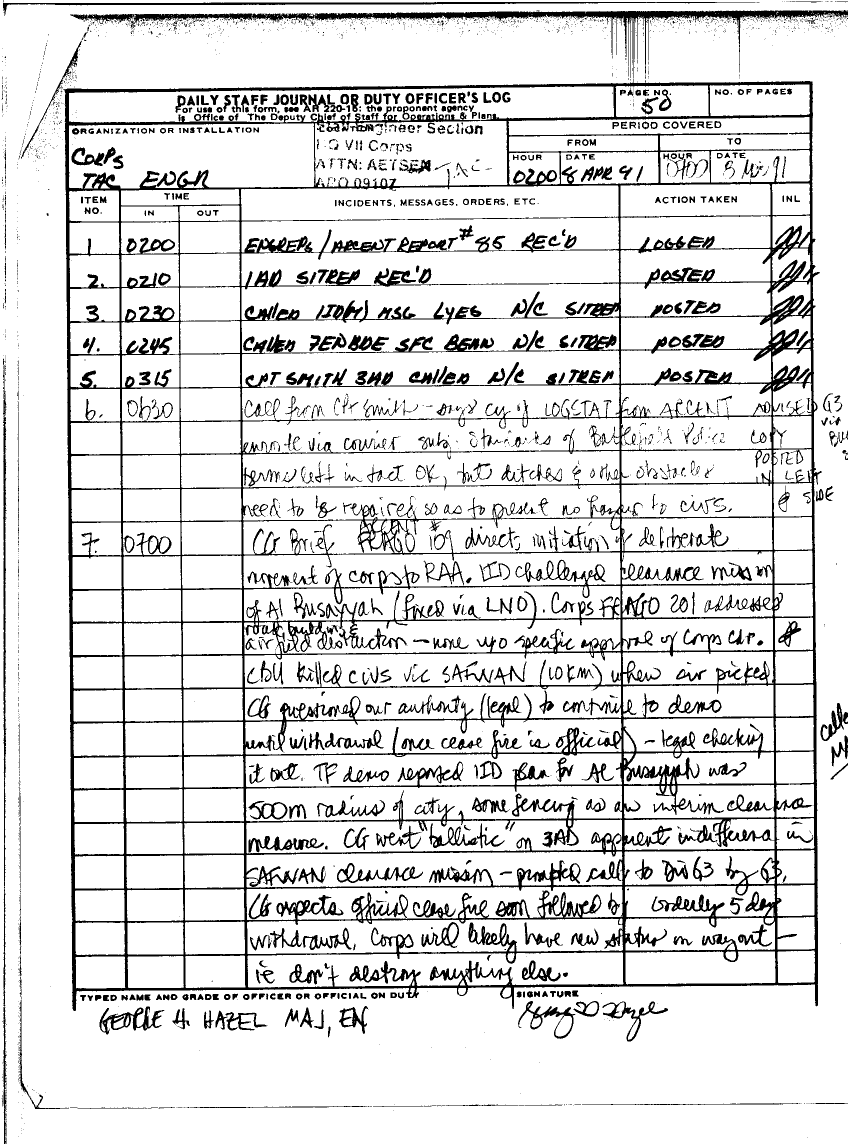 DAILY STAFF JOURNAL OR DUTY OFFICER'S LOG
For use of this form, see AR 220-15; the proponent agency
is Office of The Deputy Chief of Staff for Operations & Plans.
PAGE NO.
50
NO. OF PAGES
ORGANIZATION OR INSTALLATION
CORPS
TAC ENGR
Engineer Section
HQ VII Corps
ATTN: AETSEN TAC
APO 09107
PERIOD COVERED
FROM
TO
HOUR
DATE
HOUR
DATE
0200
8 APR 91
0700
ITEM NO.
TIME
IN
OUT
INCIDENTS, MESSAGES, ORDERS, ETC.
ACTION TAKEN
INL
1 0200 ENGREPS / ARCENT REPORT # 85 REC'D LOGGED
2. 0210 1AD SITREP REC'D POSTED
3. 0230 CALLED 1ID(M) MSG LYES N/C SITREP POSTED
4. 0245 CALLED 7ENBDE SFC BEAN N/C SITREP POSTED
5. 0315 CPT SMITH 3AD CALLED N/C SITREP POSTED
6. 0630 Call from Cpt Smith - says cy of LOGSTAT from ARCENT ADVISED G3
enroute via courier subj. Standards of Battlefield Police COPY
via
terms left in tact OK, but ditches & other obstacles POSTED
IN LEFT
need to be repaired so as to present no hazard to civs. SIDE
7. 0700 CG Brief. ARCENT FRAGO #109 directs initiation of deliberate
movement of corps to RAA. 1ID challenged clearance mission
of Al Busayyah (fixed via LNO). Corps FRAGO 201 addressed
road building &
airfield destruction - none w/o specific approval of Corps Cdr.
CBU killed civs vic SAFWAN (10 km) when picked.
CG questioned our authority (legal) to continue to demo
until withdrawal (once cease fire is official) - legal checking
it out. TF demo reported 1ID plan for Al Busayyah was
500m radius of city, some fencing as an interim clearance
measure. CG went "ballistic" on 3AD apparent indifference in
SAFWAN clearance mission - prompted call to Div G3 by G3.
CG expects official cease fire soon followed by orderly 5 day
withdrawal. Corps will likely have new status on way out -
ie don't destroy anything else.
TYPED NAME AND GRADE OF OFFICER OR OFFICIAL ON DUTY
GEORGE H. HAZEL MAJ, EN
SIGNATURE